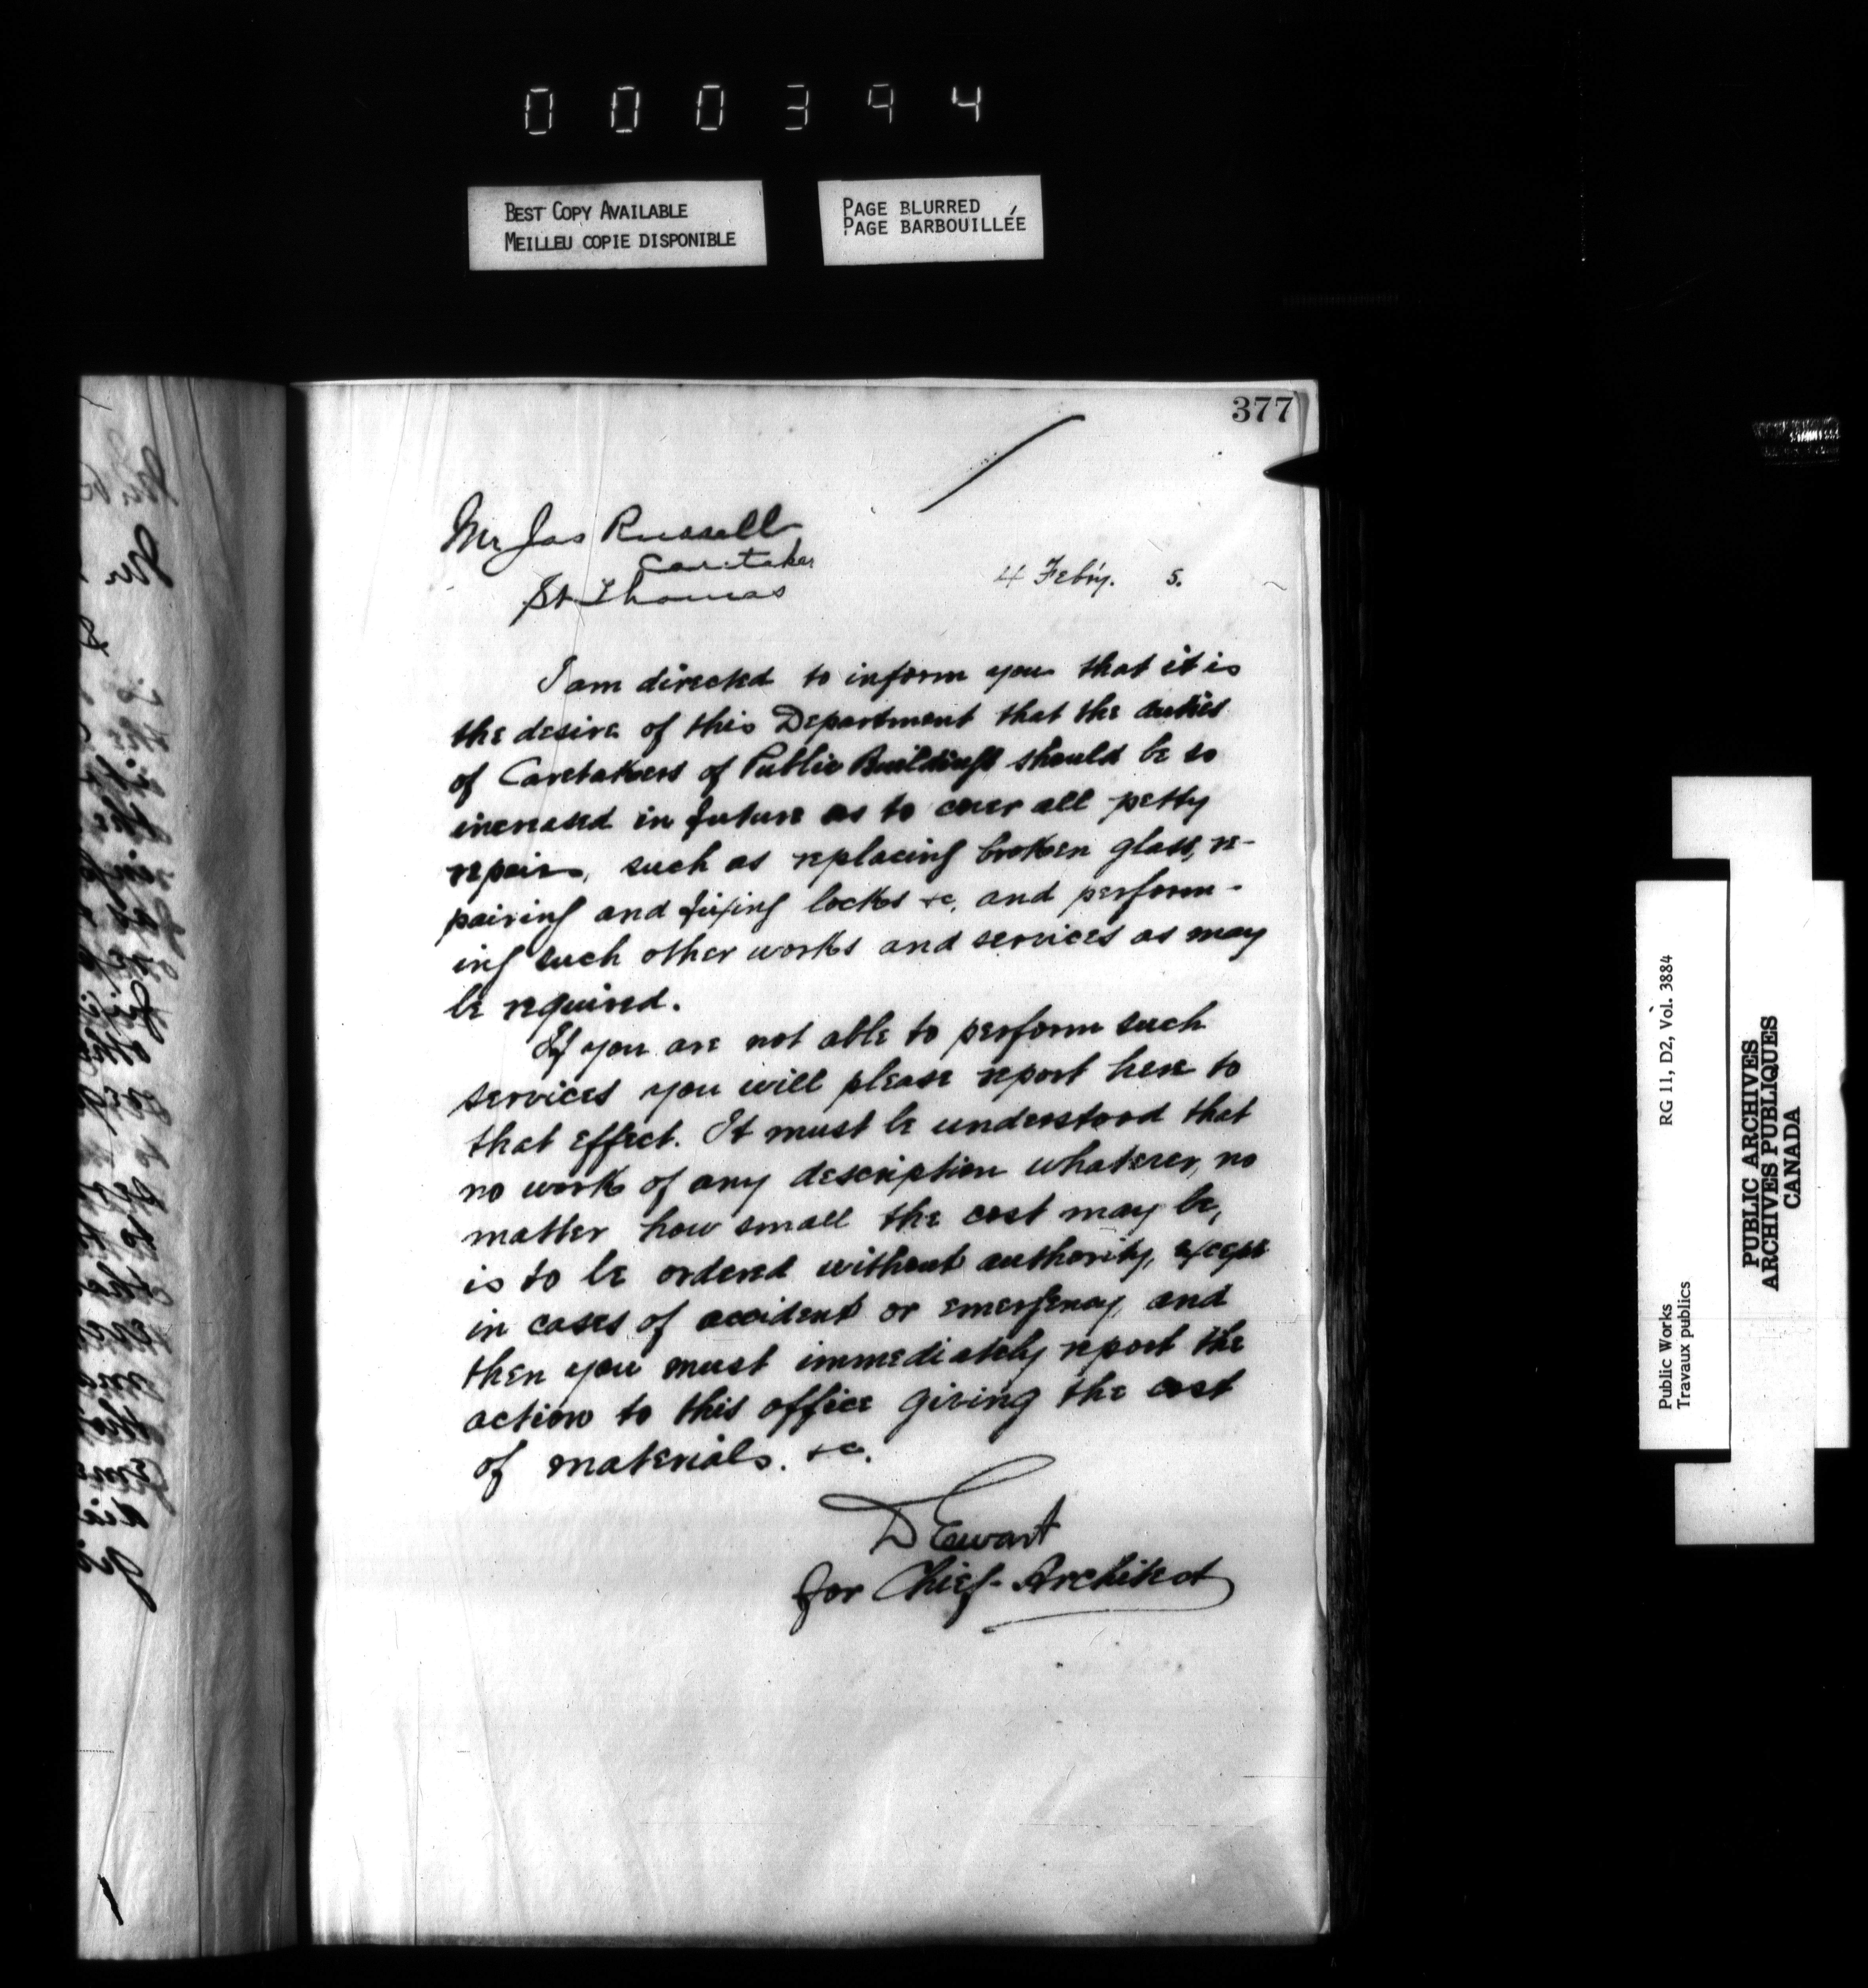 000394
BEST COPY AVAILABLE
MEILLEU COPIE DISPONIBLE
PAGE BLURRED
PAGE BARBOUILLÉE
377
Mr Jas Russell
Caretaker
St Thomas
4 Feb'y. 5.
I am directed to inform you that it is
the desire of this Department that the duties
of Caretakers of Public Buildings should be so
increased in future as to cover all petty
repairs, such as replacing broken glass, re-
pairing and fixing locks &c, and perform-
ing such other works and services as may
be required.
If you are not able to perform such
services you will please report here to
that effect. It must be understood that
no work of any description whatever, no
matter how small the cost may be,
is to be ordered without authority, except
in cases of accident or emergency, and
then you must immediately report the
action to this office giving the cost
of materials. &c.
D Ewart
for Chief-Architect
Public Works
Travaux publics
RG 11, D2, Vol. 3884
PUBLIC ARCHIVES
ARCHIVES PUBLIQUES
CANADA